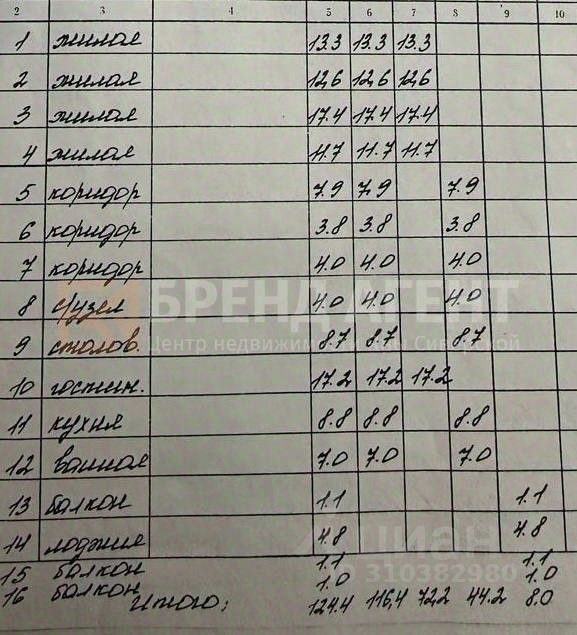 2 3 4 5 6 7 8 9 10
1 жилая 13.3 13.3 13.3
2 жилая 12,6 12,6 12,6
3 жилая 17.4 17.4 17.4
4 жилая 11.7 11.7 11.7
5 коридор 7.9 7,9 7.9
6 коридор 3.8 3.8 3.8
7 коридор 4.0 4.0 4.0
8 с/узел 4.0 4.0 4.0
БРЕНД АГЕНТ
9 столов. 8.7 8.7 8.7
Центр недвижимости Сибирской
10 гостин. 17.2 17.2 17.2
11 кухня 8.8 8.8 8.8
12 ванная 7.0 7.0 7.0
13 балкон 1.1 1.1
14 лоджия 4.8 4.8
циан
15 балкон 1.1 1.1
16 балкон 1.0 1.0
310382980
Итого: 124.4 116,4 72,2 44.2 8.0